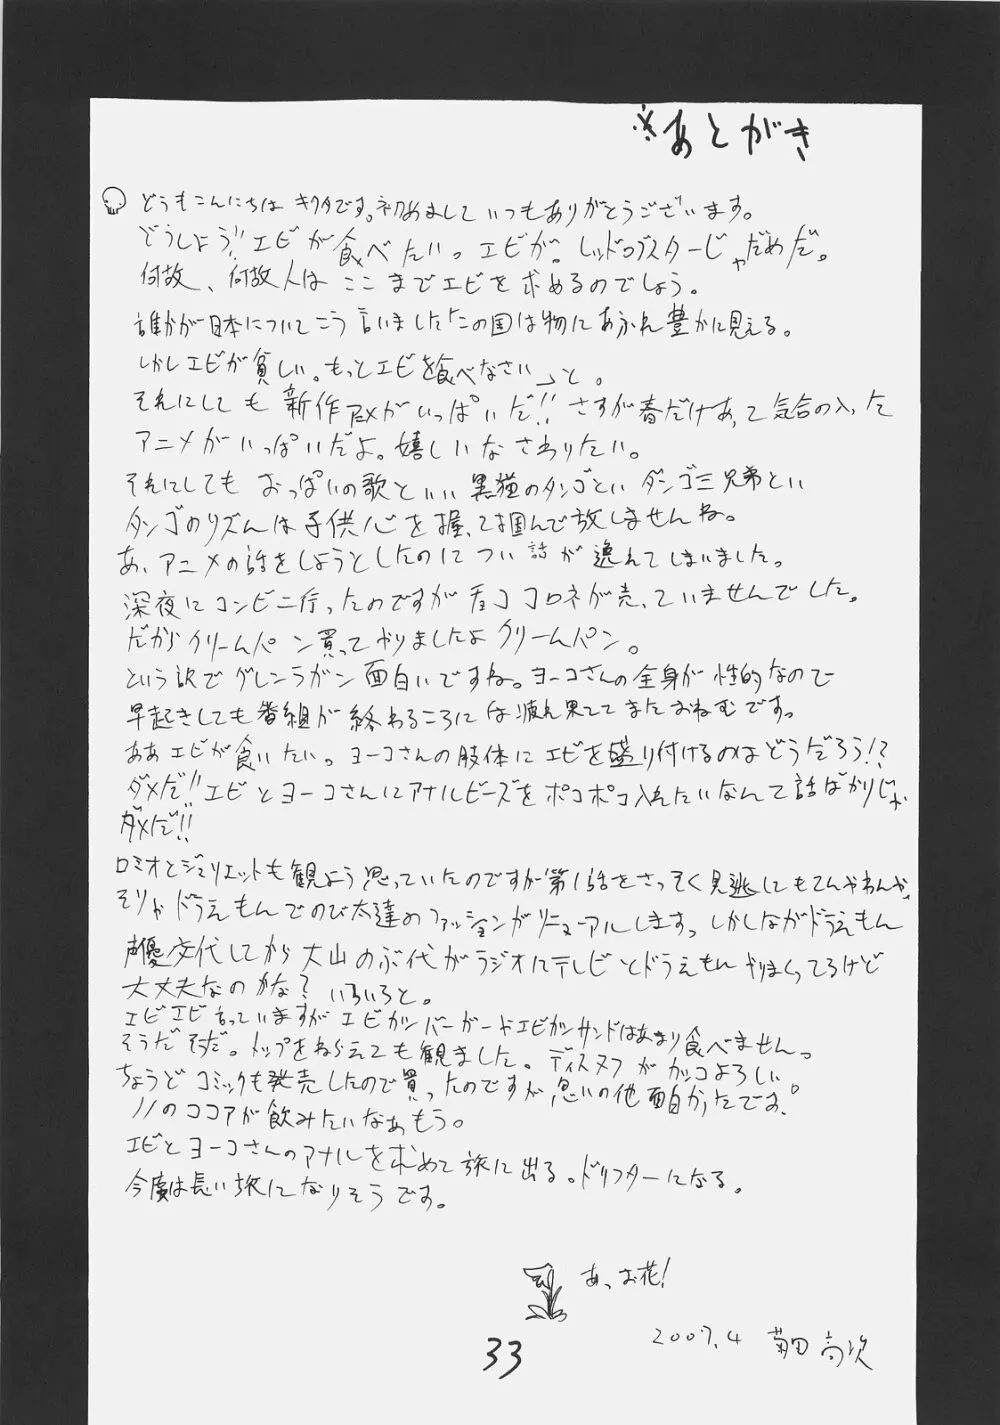 ※あとがき
どうもこんにちは キクタです。初めまして いつもありがとうございます。
どうしよう!! エビが食べたいっ エビが。レッドロブスターじゃだめだ。
何故、何故人は ここまでエビを求めるのでしょう。
誰かが日本についてこう言いました「この国は物にあふれ豊かに見える。
しかしエビが貧しい。もっとエビを食べなさい」と。
それにしても 新作アニメがいっぱいだ!! さすが春だけあって気合の入った
アニメがいっぱいだよ。嬉しいなさわりたい。
それにしても おっぱいの歌といい 黒猫のタンゴといい ダンゴ三兄弟とい
タンゴのリズムは子供心を握って掴んで放しませんね。
あ、アニメの話をしようとしたのについ話が逸れてしまいました。
深夜にコンビニ行ったのですがチョココロネが売っていませんでした。
だからクリームパン買ってやりましたよクリームパン。
という訳でグレンラガン面白いですね。ヨーコさんの全身が性的なので
早起きしても番組が終わるころには疲れ果ててまたおねむです。
ああエビが食いたい。ヨーコさんの肢体にエビを盛り付けるのはどうだろう!?
ダメだ!! エビとヨーコさんにアナルビーズをポコポコ入れたいなんて話ばかりじゃ
ダメだ!!
ロミオとジュリエットも観よう思っていたのですが第1話をさっそく見逃してもてんやわんや
そりゃドラえもんでのび太達のファッションがリニューアルします。しかしながドラえもん
声優交代してから大山のぶ代がラジオにテレビとドラえもんやりまくってるけど
大丈夫なのかな? いろいろと。
エビエビ言っていますがエビカツバーガーやエビカツサンドはあまり食べませんっ
そうだそうだ。トップをねらえても観ました。ディスヌフがカッコよろしい
ちょうどコミックも発売したので買ったのですが思いの他面白かったです。
ノノのココアが飲みたいなぁもう。
エビとヨーコさんのアナルを求めて旅に出る。ドリフターになる。
今度は長い旅になりそうです。
あっお花!
2007.4 菊田高次
33